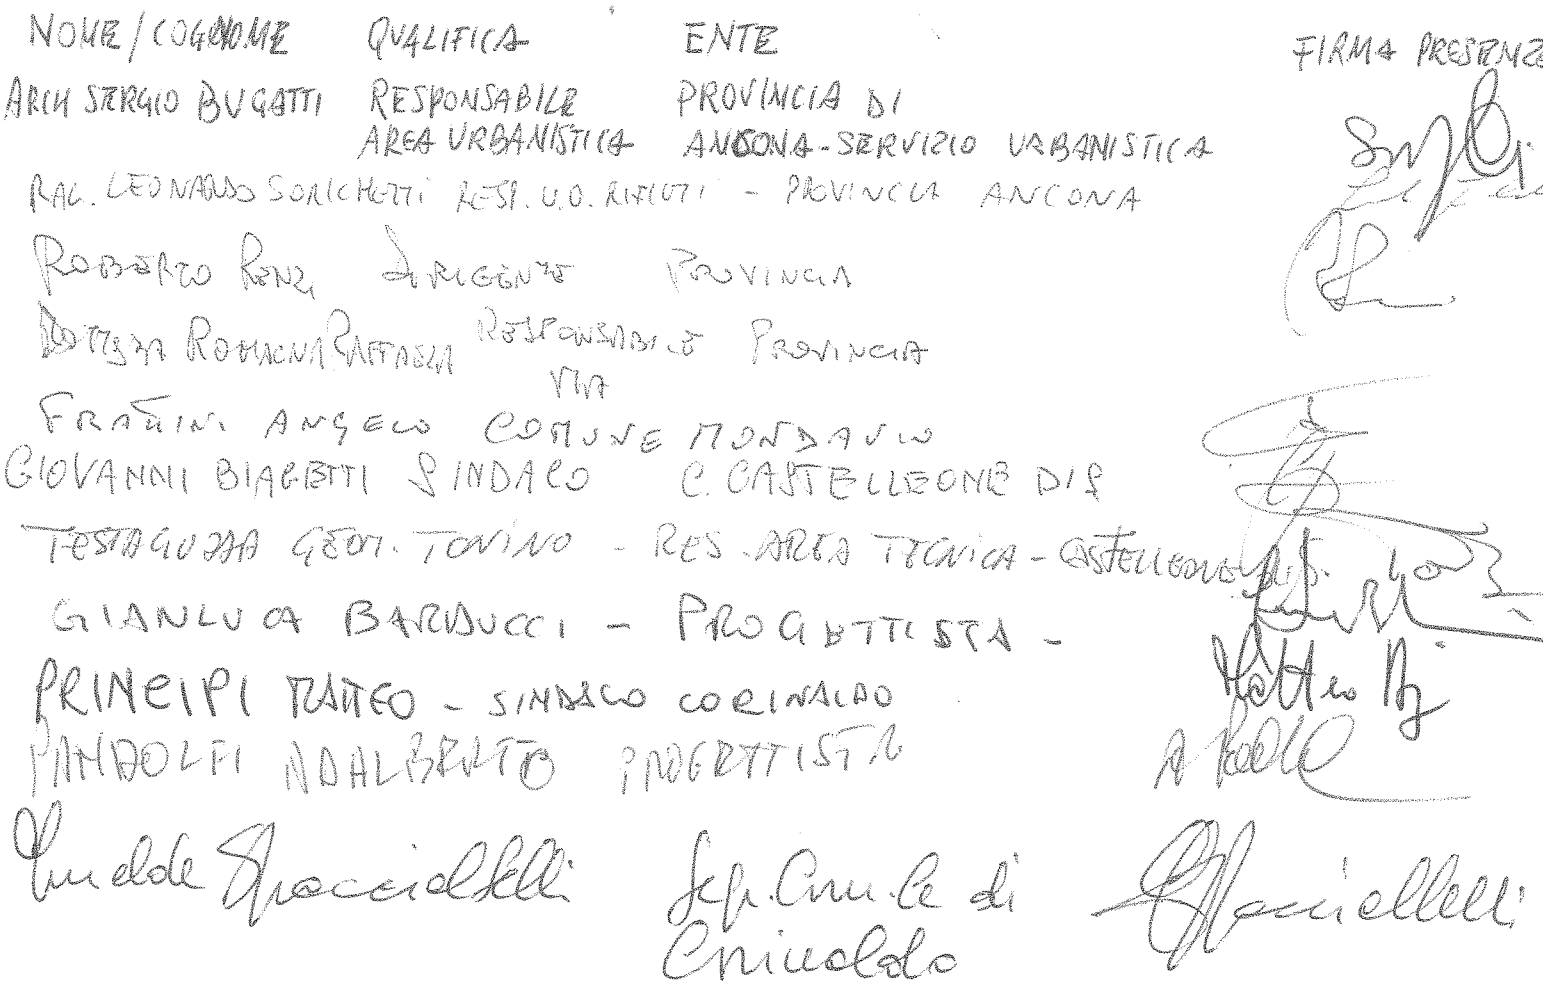 NOME/COGNOME QUALIFICA ENTE FIRMA PRESENZE
ARCH SERGIO BUGATTI RESPONSABILE PROVINCIA DI
AREA URBANISTICA ANCONA - SERVIZIO URBANISTICA
RAG. LEONARDO SORICHETTI RESP. U.O. RIFIUTI - PROVINCIA ANCONA
ROBERTO RENZI DIRIGENTE PROVINCIA
DOTT.SSA ROMAGNA RAFFAELA RESPONSABILE PROVINCIA
VIA
FRATTINI ANGELO COMUNE MONDAVIO
GIOVANNI BIAGETTI SINDACO C. CASTELLEONE DI S
TESTAGUZZA GEOM. TONINO - RES. AREA TECNICA - CASTELLEONE DI S.
GIANLUCA BARDUCCI - PROGETTISTA -
PRINCIPI MATTEO - SINDACO CORINALDO Matteo
PANDOLFI ADALBERTO PROGETTISTA
Spacciatelli Segr. Com.le di
Corinaldo